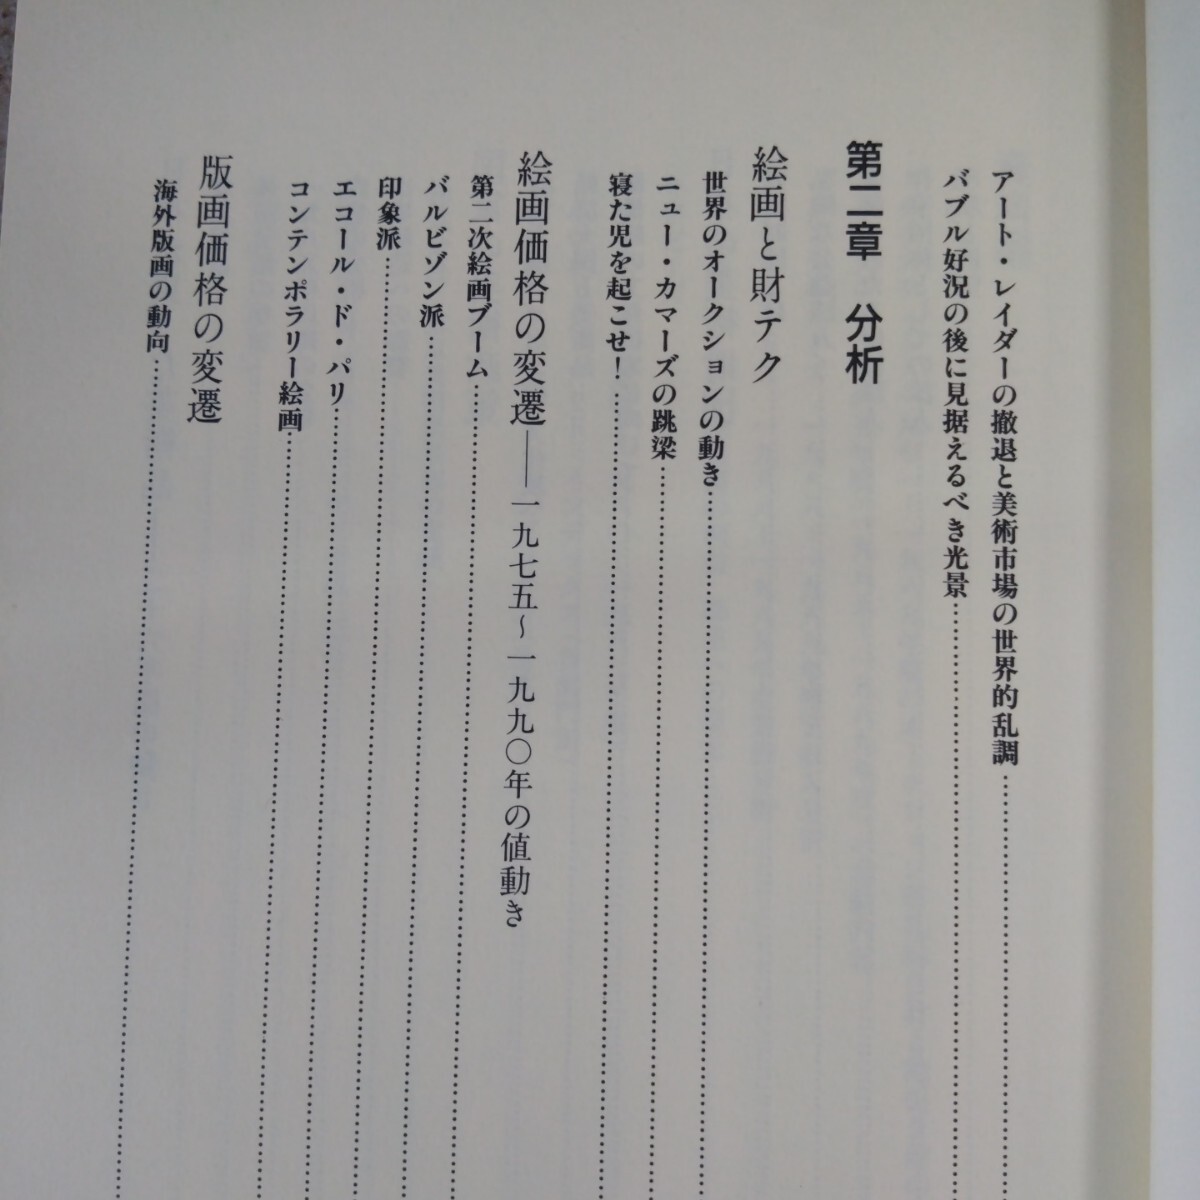 アート・レイダーの撤退と美術市場の世界的乱調……………………
バブル好況の後に見据えるべき光景……………………
第二章　分析
絵画と財テク
世界のオークションの動き……………………
ニュー・カマーズの跳梁……………………
寝た児を起こせ！……………………
絵画価格の変遷――一九七五～一九九〇年の値動き
第二次絵画ブーム……………………
バルビゾン派……………………
印象派……………………
エコール・ド・パリ……………………
コンテンポラリー絵画……………………
版画価格の変遷
海外版画の動向……………………